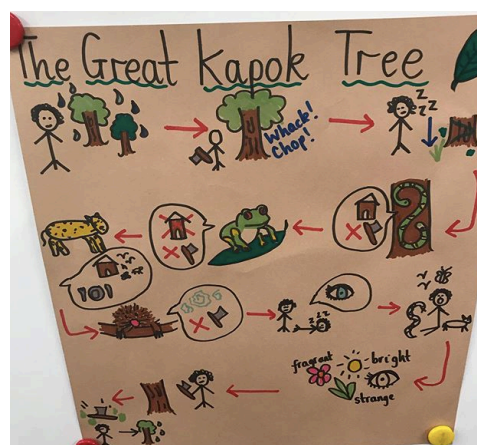 The Great Kapok Tree
Whack!
Chop!
z z z z
fragrant bright
strange